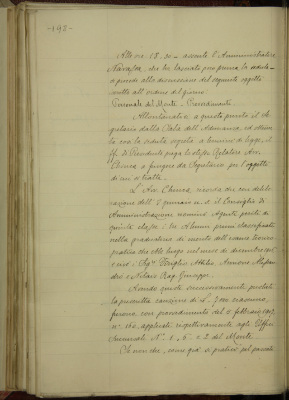 -192-
Alle ore 18.30 - assente l'Amministratore
che ha lasciato poco prima la seduta -
si procede alla discussione del seguente oggetto
iscritto all'ordine del giorno:
Personale del Monte - Provvedimenti.
Allontanatosi a questo punto il Se-
gretario dalla Sala dell'Adunanza, ed essen-
do così la seduta segreta a termini di legge, il
Sig. Presidente prega lo stesso Relatore Avv.
Chiesa a fungere da Segretario per l'oggetto
di cui si tratta.
L'Avv. Chiesa, ricorda che con delibe-
razione dell' 8 gennaio u. s. il Consiglio di
Amministrazione nominò Agenti periti di
quinta classe i tre Alunni primi classificati
nella graduatoria di merito dell'esame teorico
pratico che ebbe luogo nel mese di dicembre
e cioè: Sigg. Attilio, Alessan-
dro e Rag. Giuseppe.
Avendo questi successivamente prestata
la prescritta cauzione di L. ciascuno,
furono con provvedimento del febbraio
N. 160, applicati rispettivamente agli Uffici
Succursali N. 1, 6 e 2 del Monte.